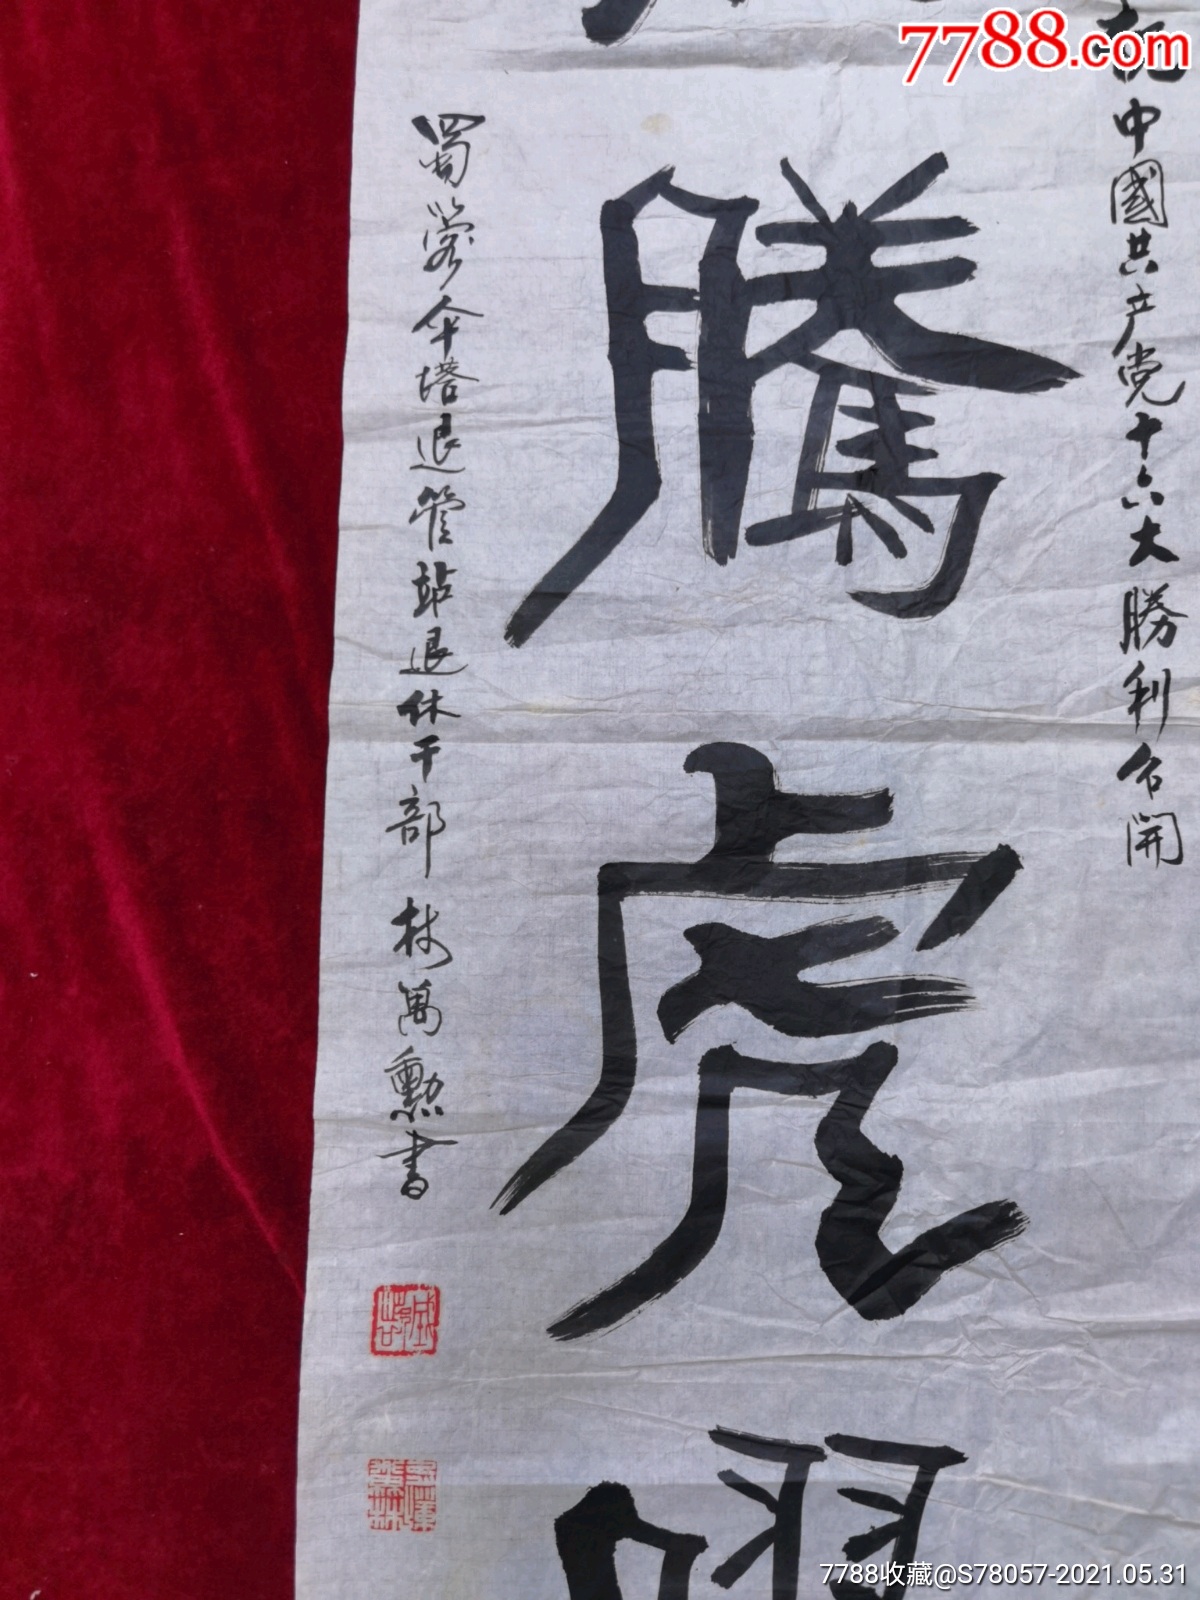 7788.com
中國共产党十六大勝利召開
騰虎躍
蜀蓉伞塔退管站退休干部 林萬勲書
7788收藏@S78057-2021.05.31